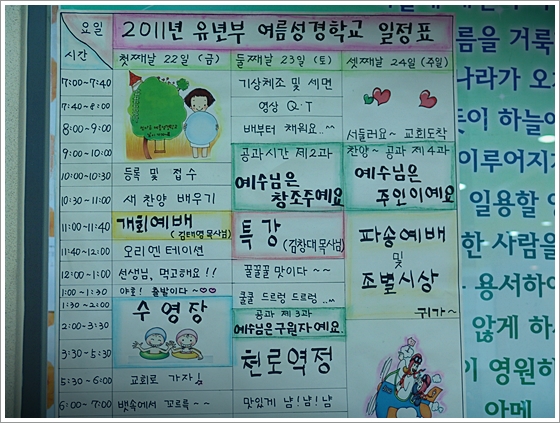 요일
2011년 유년부 여름성경학교 일정표
시간
첫째날 22일 (금)
둘째날 23일 (토)
셋째날 24일 (주일)
7:00~7:40
기상체조 및 세면
7:40~8:00
영상 Q.T
8:00~9:00
배부터 채워요..~
서둘러요~ 교회도착
9:00~10:00
공과시간 제2과
예수님은
창조주예요
찬양~ 공과 제4과
예수님은
주인이예요
10:00~10:30
등록 및 접수
10:30~11:00
새 찬양 배우기
11:00~11:40
개회예배
(김태영 목사님)
특강
(김창대 목사님)
파송예배
및
조별시상
귀가~
11:40~12:00
오리엔테이션
12:00~1:00
선생님, 먹고해요!!
꿀꿀꿀 맛이다~~
1:00~1:30
야호! 출발이다~♡♡
쿨쿨 드르렁 드르렁 ..~
1:30~2:00
수영장
공과 제3과
예수님은구원자예요
2:00~3:30
천로역정
3:30~5:30
5:30~6:00
교회로 가자!
6:00~7:00
뱃속에서 꼬르륵~~
맛있게 냠!냠!냠!
름을 거룩
나라가 오
뜻이 하늘에
이루어지
일용할
한 사람을
용서하여
않게 하
이 영원히
아멘